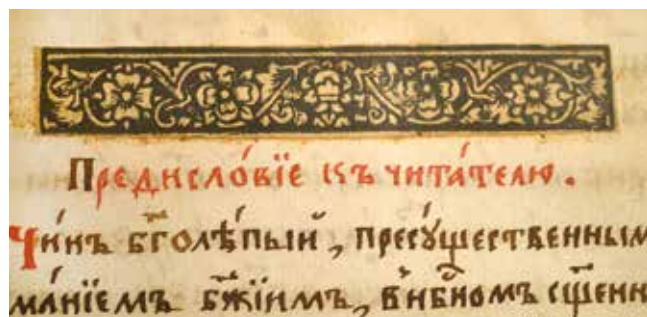 Предисло́вїе къ чита́телю.
Чи́нъ бг҃олѣ́пый, пресу́щественным
ма́нїемъ бж҃їимъ, в̾нб҃номъ сщ҃енн